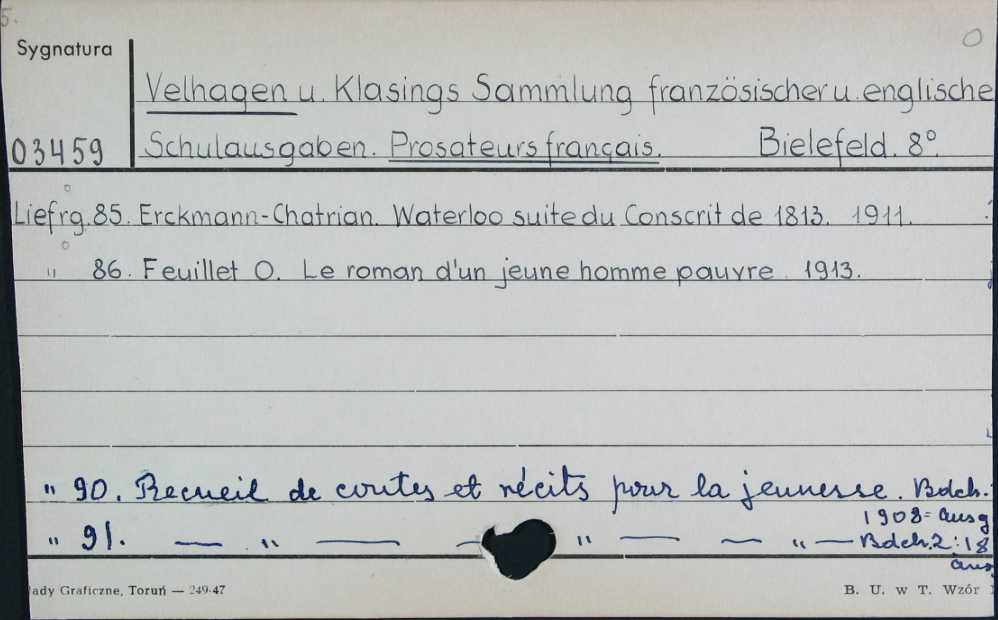 5.
Sygnatura
Velhagen u. Klasings Sammlung französischer u. englische
03459 Schulausgaben. Prosateurs français. Bielefeld. 8°.
Liefrg. 85. Erckmann-Chatrian. Waterloo suite du Conscrit de 1813. 1911.
" 86. Feuillet O. Le roman d'un jeune homme pauvre. 1913.
" 90. Recueil de contes et récits pour la jeunesse. Bdch.
1908= Ausg
" 91. — " — — " — — " — Bdch. 2: 18
Aus
łady Graficzne, Toruń — 249-47 B. U. w T. Wzór